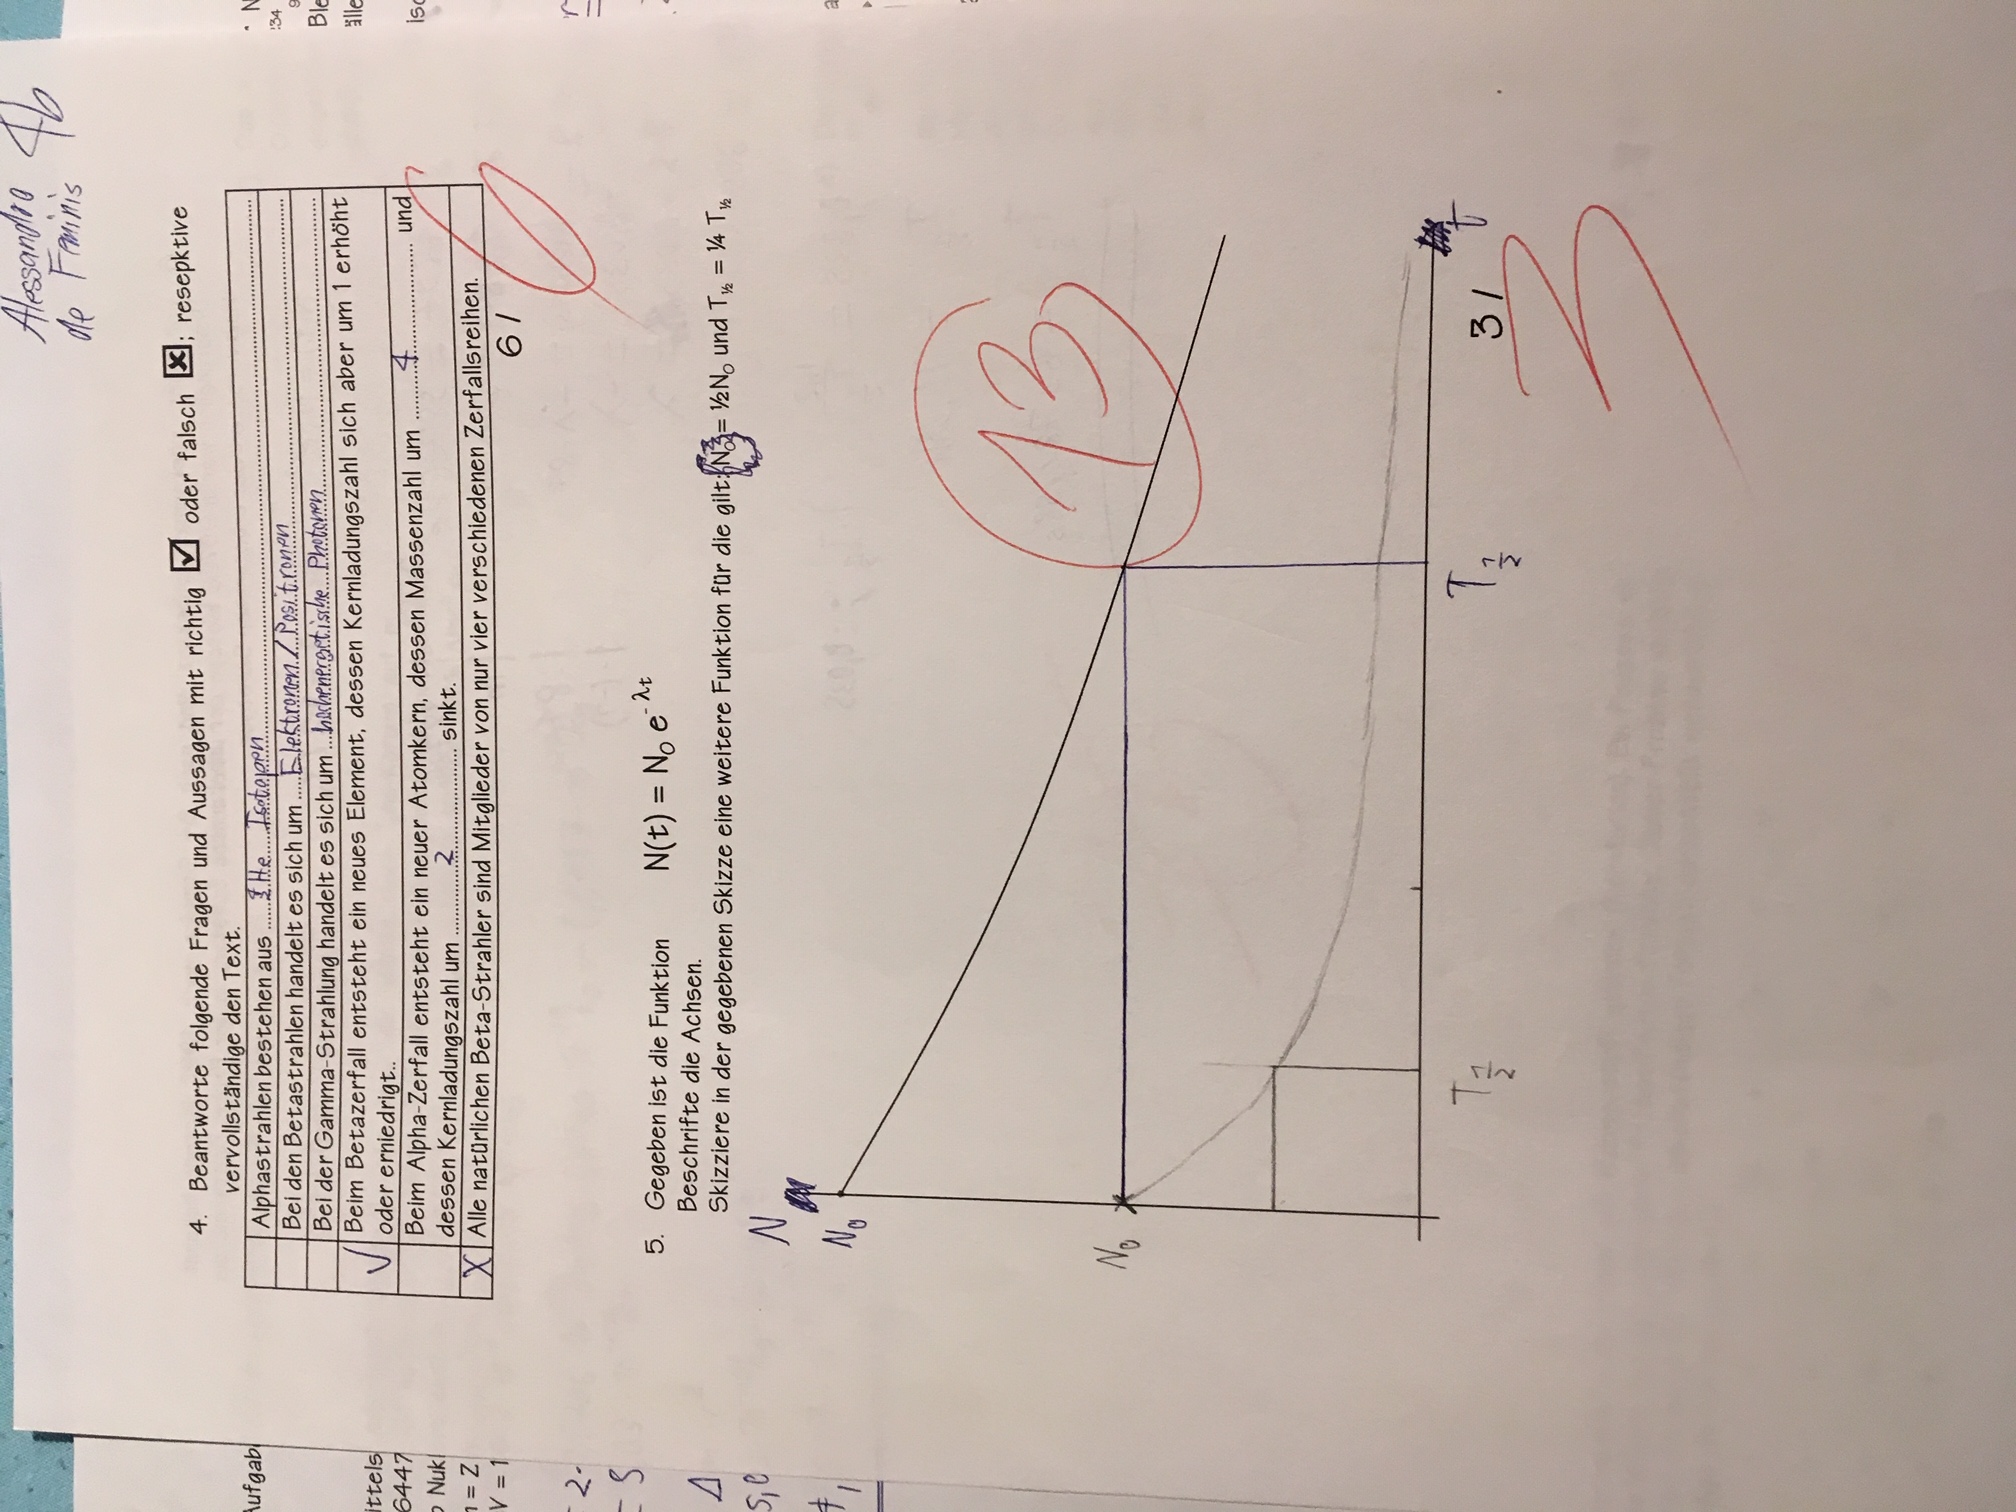 Alessandro 4b
de Feminis
4. Beantworte folgende Fragen und Aussagen mit richtig ☑ oder falsch ☒; resepktive
vervollständige den Text.
Alphastrahlen bestehen aus ...... He Isotopen ......
Bei den Betastrahlen handelt es sich um .... Elektronen / Positronen ......
Bei der Gamma-Strahlung handelt es sich um ... hochenergetische Photonen ......
✓ Beim Betazerfall entsteht ein neues Element, dessen Kernladungszahl sich aber um 1 erhöht
oder erniedrigt..
Beim Alpha-Zerfall entsteht ein neuer Atomkern, dessen Massenzahl um ........ 4 ........ und
dessen Kernladungszahl um ........ 2 ........ sinkt.
X Alle natürlichen Beta-Strahler sind Mitglieder von nur vier verschiedenen Zerfallsreihen.
6 / 6
5. Gegeben ist die Funktion N(t) = N₀ e^-λt
Beschrifte die Achsen.
Skizziere in der gegebenen Skizze eine weitere Funktion für die gilt: N₀ = ½N₀ und T½ = ¼ T½
N
N₀
13
N₀
T½ T½ t
3 /
3
Aufgab
ittels
6447
Nukl
= Z
V = 1
2.
= S
Δ
N
234
9
Ble
älle